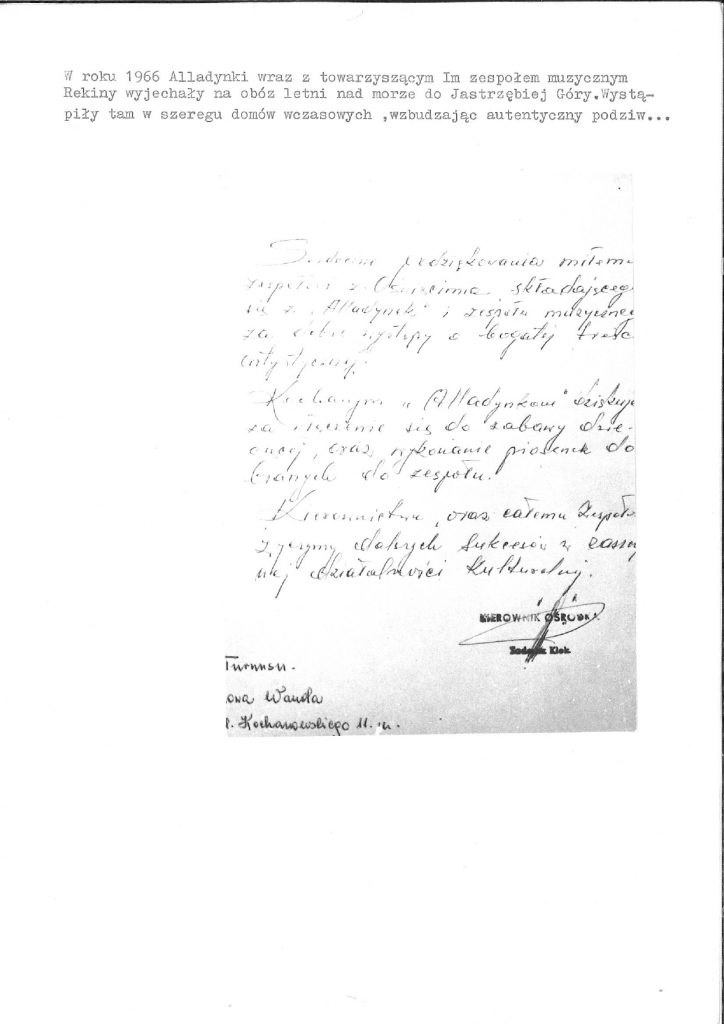 W roku 1966 Alladynki wraz z towarzyszącym Im zespołem muzycznym
Rekiny wyjechały na obóz letni nad morze do Jastrzębiej Góry.Wystą-
piły tam w szeregu domów wczasowych ,wzbudzając autentyczny podziw...
podziękowania miłemu
zespołowi z Oświęcimia, składającego
się z „Alladynek" i zespołu muzycznego
za dobre występy o bogatej treści
artystycznej.
Kochanym „Alladynkom" dziękuję
za włączenie się do zabawy
oraz wykonanie piosenek do
branych do zespołu.
Kierownictwu, oraz całemu Zespołu
życzymy dalszych sukcesów w
działalności Kulturalnej.
KIEROWNIK OŚRODKA
Klok
Turnusu.
owa Wanda
l. Kochanowskiego 11.